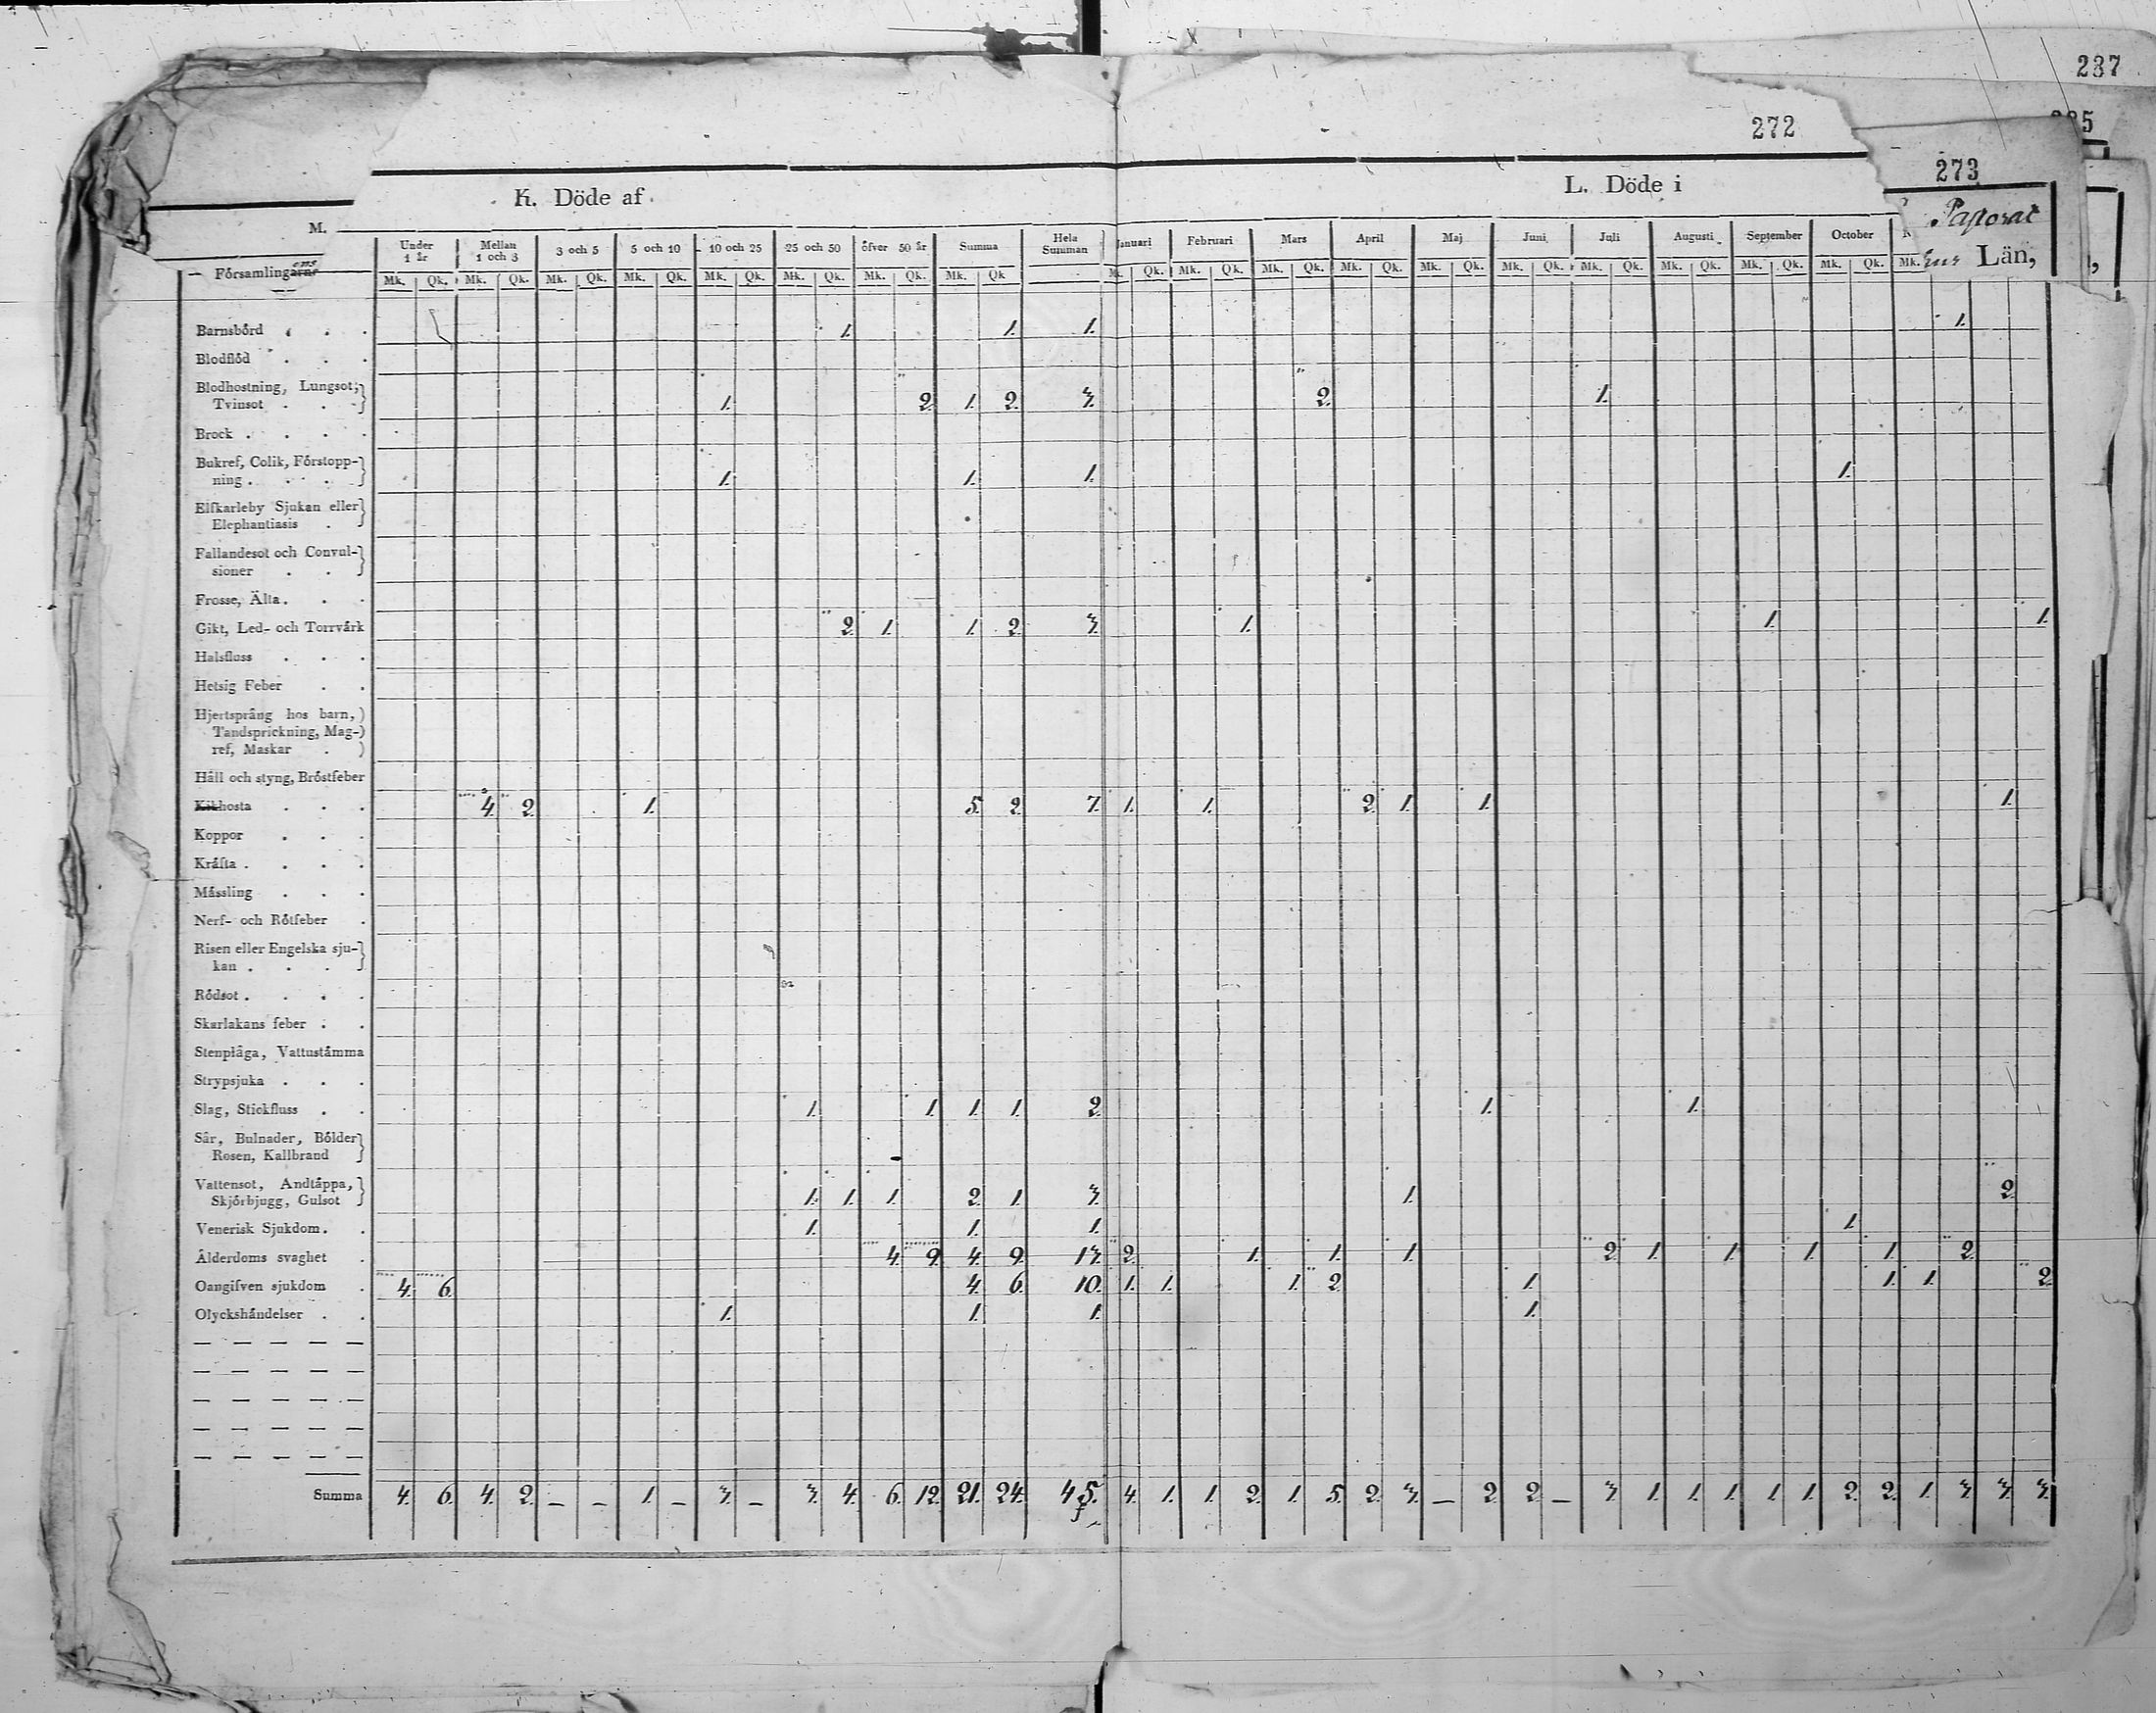 287
272
273
K. Döde af
L. Döde i
Pastorat
Län,
M.
Under 1 år | Mellan 1 och 3 | 3 och 5 | 5 och 10 | 10 och 25 | 25 och 50 | öfver 50 år | Summa | Hela Summan | Januari | Februari | Mars | April | Maj | Juni | Juli | Augusti | September | October
— Församlingarne ens
Mk. Qk. Mk. Qk. Mk. Qk. Mk. Qk. Mk. Qk. Mk. Qk. Mk. Qk. Mk. Qk M. Qk. Mk. Qk. Mk. Qk. Mk. Qk. Mk. Qk. Mk. Qk. Mk. Qk. Mk. Qk. Mk. Qk. Mk. Qk. Mk.
Barnsbörd . . . 1. 1. 1. 1.
Blodflöd . . .
Blodhostning, Lungsot;
Tvinsot . . . 1. 2. 1. 2. 3. 2. 1.
Brock . . . .
Bukref, Colik, Förstopp-
ning . . . . 1. 1. 1. 1.
Elfkarleby Sjukan eller
Elephantiasis .
Fallandesot och Convul-
sioner . .
Frosse, Älta . . .
Gikt, Led- och Torrvärk 2. 1. 1. 2. 3. 1. 1. 1.
Halsfluss . . .
Hetsig Feber . .
Hjertsprång hos barn,
Tandsprickning, Mag-
ref, Maskar .
Håll och styng, Bröstfeber
Kikhosta . . . 4. 2. 1. 5. 2. 7. 1. 1. 2. 1. 1. 1.
Koppor . . .
Kräfta . . . .
Mässling . . .
Nerf- och Rötfeber .
Risen eller Engelska sju-
kan . . . .
Rödsot . . . .
Skarlakans feber . .
Stenplåga, Vattustämma
Strypsjuka . . .
Slag, Stickfluss . . 1. 1. 1. 1. 2. 1. 1.
Sår, Bulnader, Bölder
Rosen, Kallbrand
Vattensot, Andtäppa,
Skjörbjugg, Gulsot 1. 1. 1. 2. 1. 3. 1. 2.
Venerisk Sjukdom . . 1. 1. 1. 1.
Ålderdoms svaghet . 4. 9. 4. 9. 13. 2. 1. 1. 1. 2. 1. 1. 1. 1. 2.
Oangifven sjukdom . 4. 6. 4. 6. 10. 1. 1. 1. 2. 1. 1. 1. 2.
Olyckshändelser . . 1. 1. 1. 1.
Summa 4. 6. 4. 2. — — 1. — 3. — 3. 4. 6. 12. 21. 24. 45. 4. 1. 1. 2. 1. 5. 2. 3. — 2. 2. — 3. 1. 1. 1. 1. 1. 2. 2. 1. 3. 3. 3.